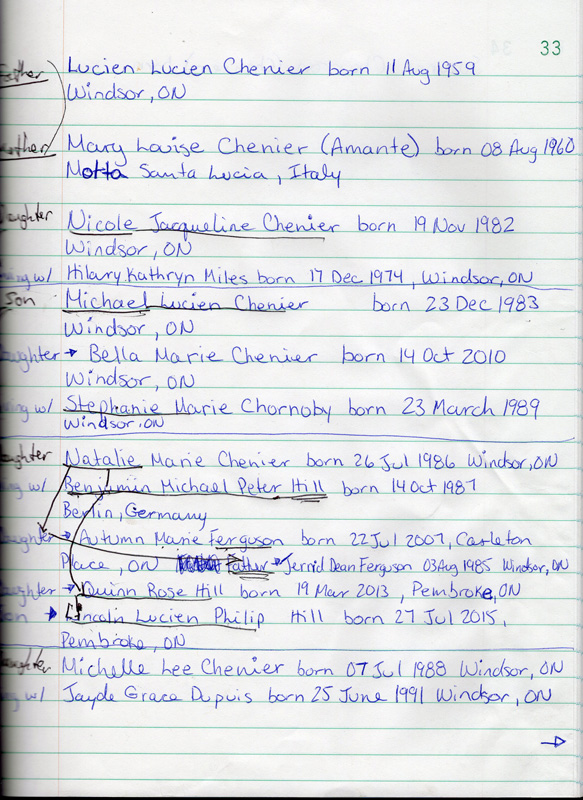 33
Father Lucien Lucien Chenier born 11 Aug 1959
Windsor, ON
Mother Mary Louise Chenier (Amante) born 08 Aug 1960
Motta Santa Lucia, Italy
Daughter Nicole Jacqueline Chenier born 19 Nov 1982
Windsor, ON
w/ Hilary Kathryn Miles born 17 Dec 1974, Windsor, ON
Son Michael Lucien Chenier born 23 Dec 1983
Windsor, ON
Daughter → Bella Marie Chenier born 14 Oct 2010
Windsor, ON
w/ Stephanie Marie Chornoby born 23 March 1989
Windsor, ON
Daughter Natalie Marie Chenier born 26 Jul 1986 Windsor, ON
w/ Benjimin Michael Peter Hill born 14 Oct 1987
Berlin, Germany
Daughter → Autumn Marie Ferguson born 22 Jul 2007, Carleton
Place, ON Father → Jerrid Dean Ferguson 03 Aug 1985 Windsor, ON
Daughter → Quinn Rose Hill born 19 Mar 2013, Pembroke, ON
Son → Lincoln Lucien Philip Hill born 27 Jul 2015,
Pembroke, ON
Daughter Michelle Lee Chenier born 07 Jul 1988 Windsor, ON
w/ Jayde Grace Dupuis born 25 June 1991 Windsor, ON
→